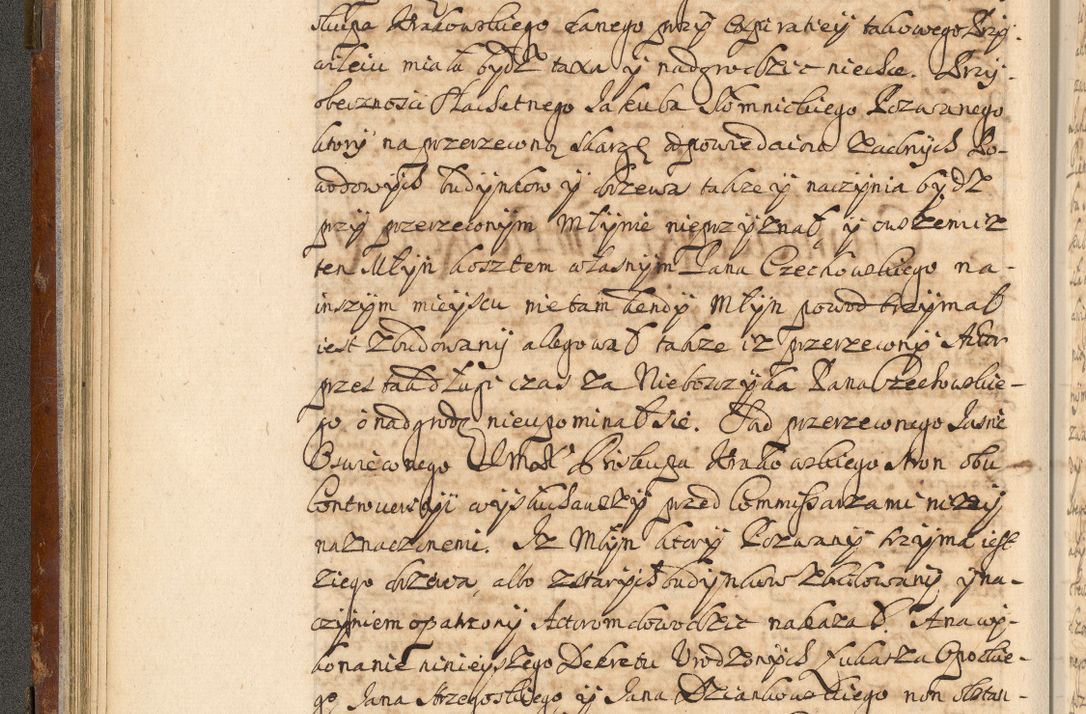 skupa Krakowskiego danego przy expiratiey takowego Przy-
wileiu miała bydź taxa y nadgrodzić niechce. Przy-
obecznosci Szlachetnego Jakuba Słomnickiego Pozwanego
ktory na przerzeconą skargę odpowiedaiąc zadnych Po-
wodowych budynkow y drzewa takze y naczynia bydz
przy przerzeconym Młynie nieprzyznał, y owszem iz
ten Młyn kosztem własnym Pana Czechowskiego na-
inszym mieyscu nie tam kendy Młyn powod trzymał
iest zbudowany allegował takze iz przerzecony Aktor
przes tak długi czas za Nieboszczyka Pana Czechowskie-
go o nadgrodę nieupominał sie. Sad przerzeconego Jasnie
Oswieconego Xdza Biskupa Krakowskiego stron obu
Controuersyi wysłuchawszy przed Commissarzami nizey
naznaczonemi. Iz Młyn ktory Pozwany trzyma iest
ziego drzewa, albo zstarych budynkow zbudowany y na-
czyniem opatrzony Actorom dowodzic nakazał. A na wy-
konanie ninieyszego Dekretu Urodzonych Łukasza Opockie-
go Jana Strzegoskiego y Jana Dziankowskiego non obstan-